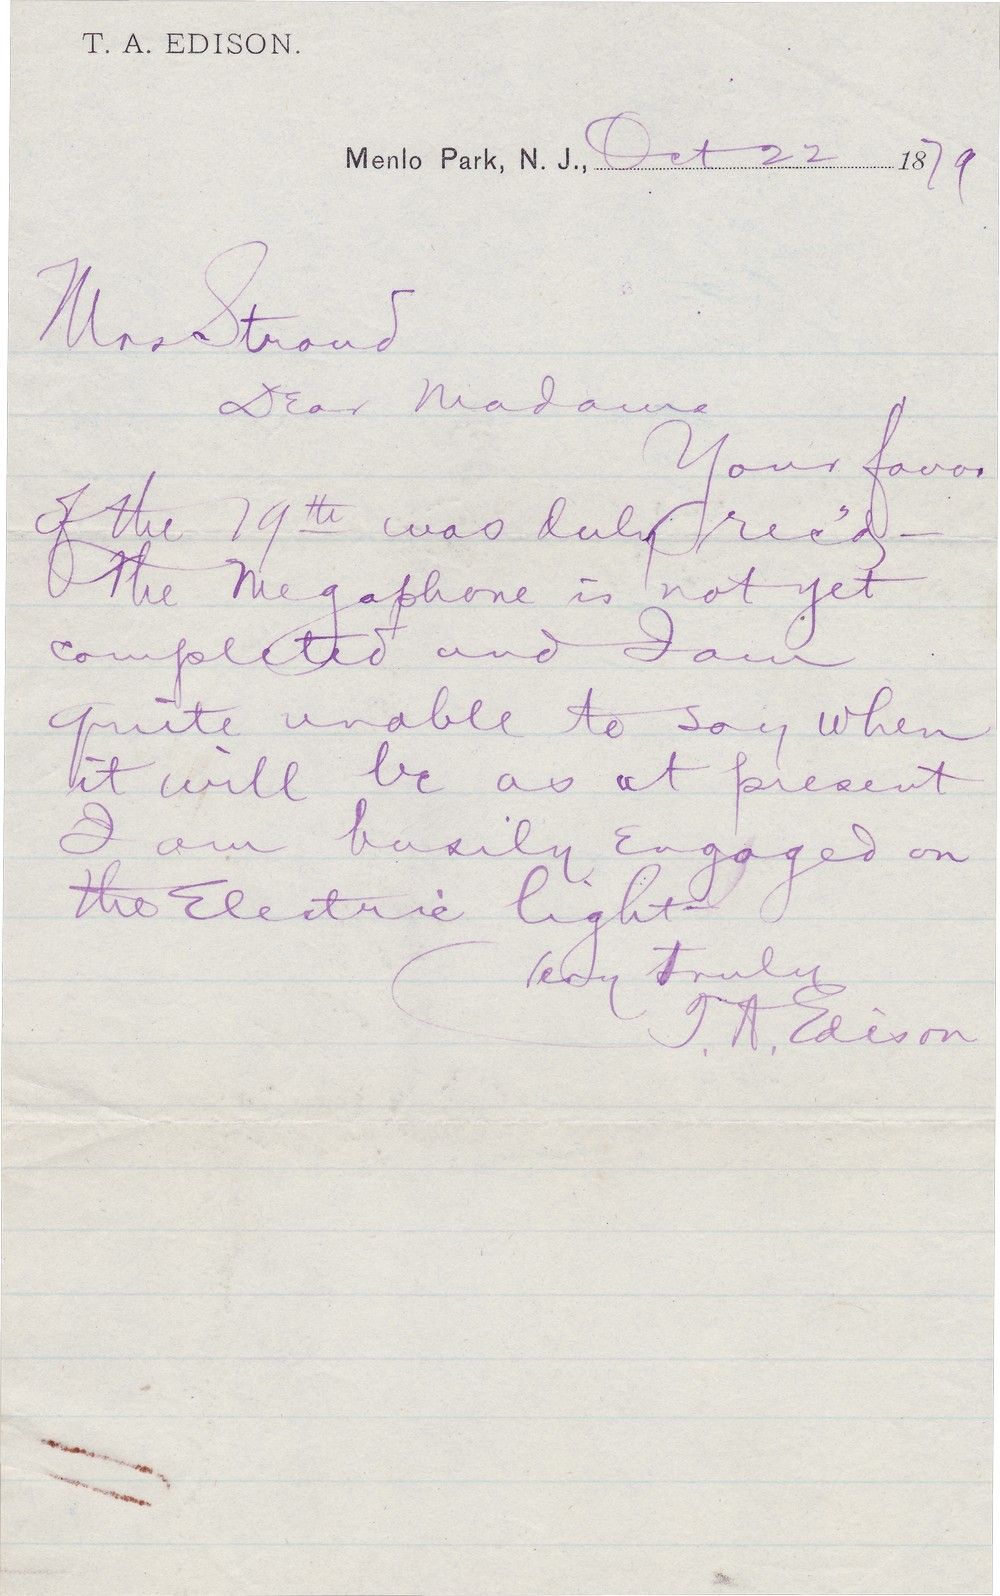 T. A. EDISON.
Menlo Park, N. J., Oct 22 1879
Mrs Stroud
Dear Madame
Your favor
of the 19th was duly rec'd —
The Megaphone is not yet
completed and I am
quite unable to say when
it will be as at present
I am busily engaged on
the Electric light —
Very truly
T. A. Edison